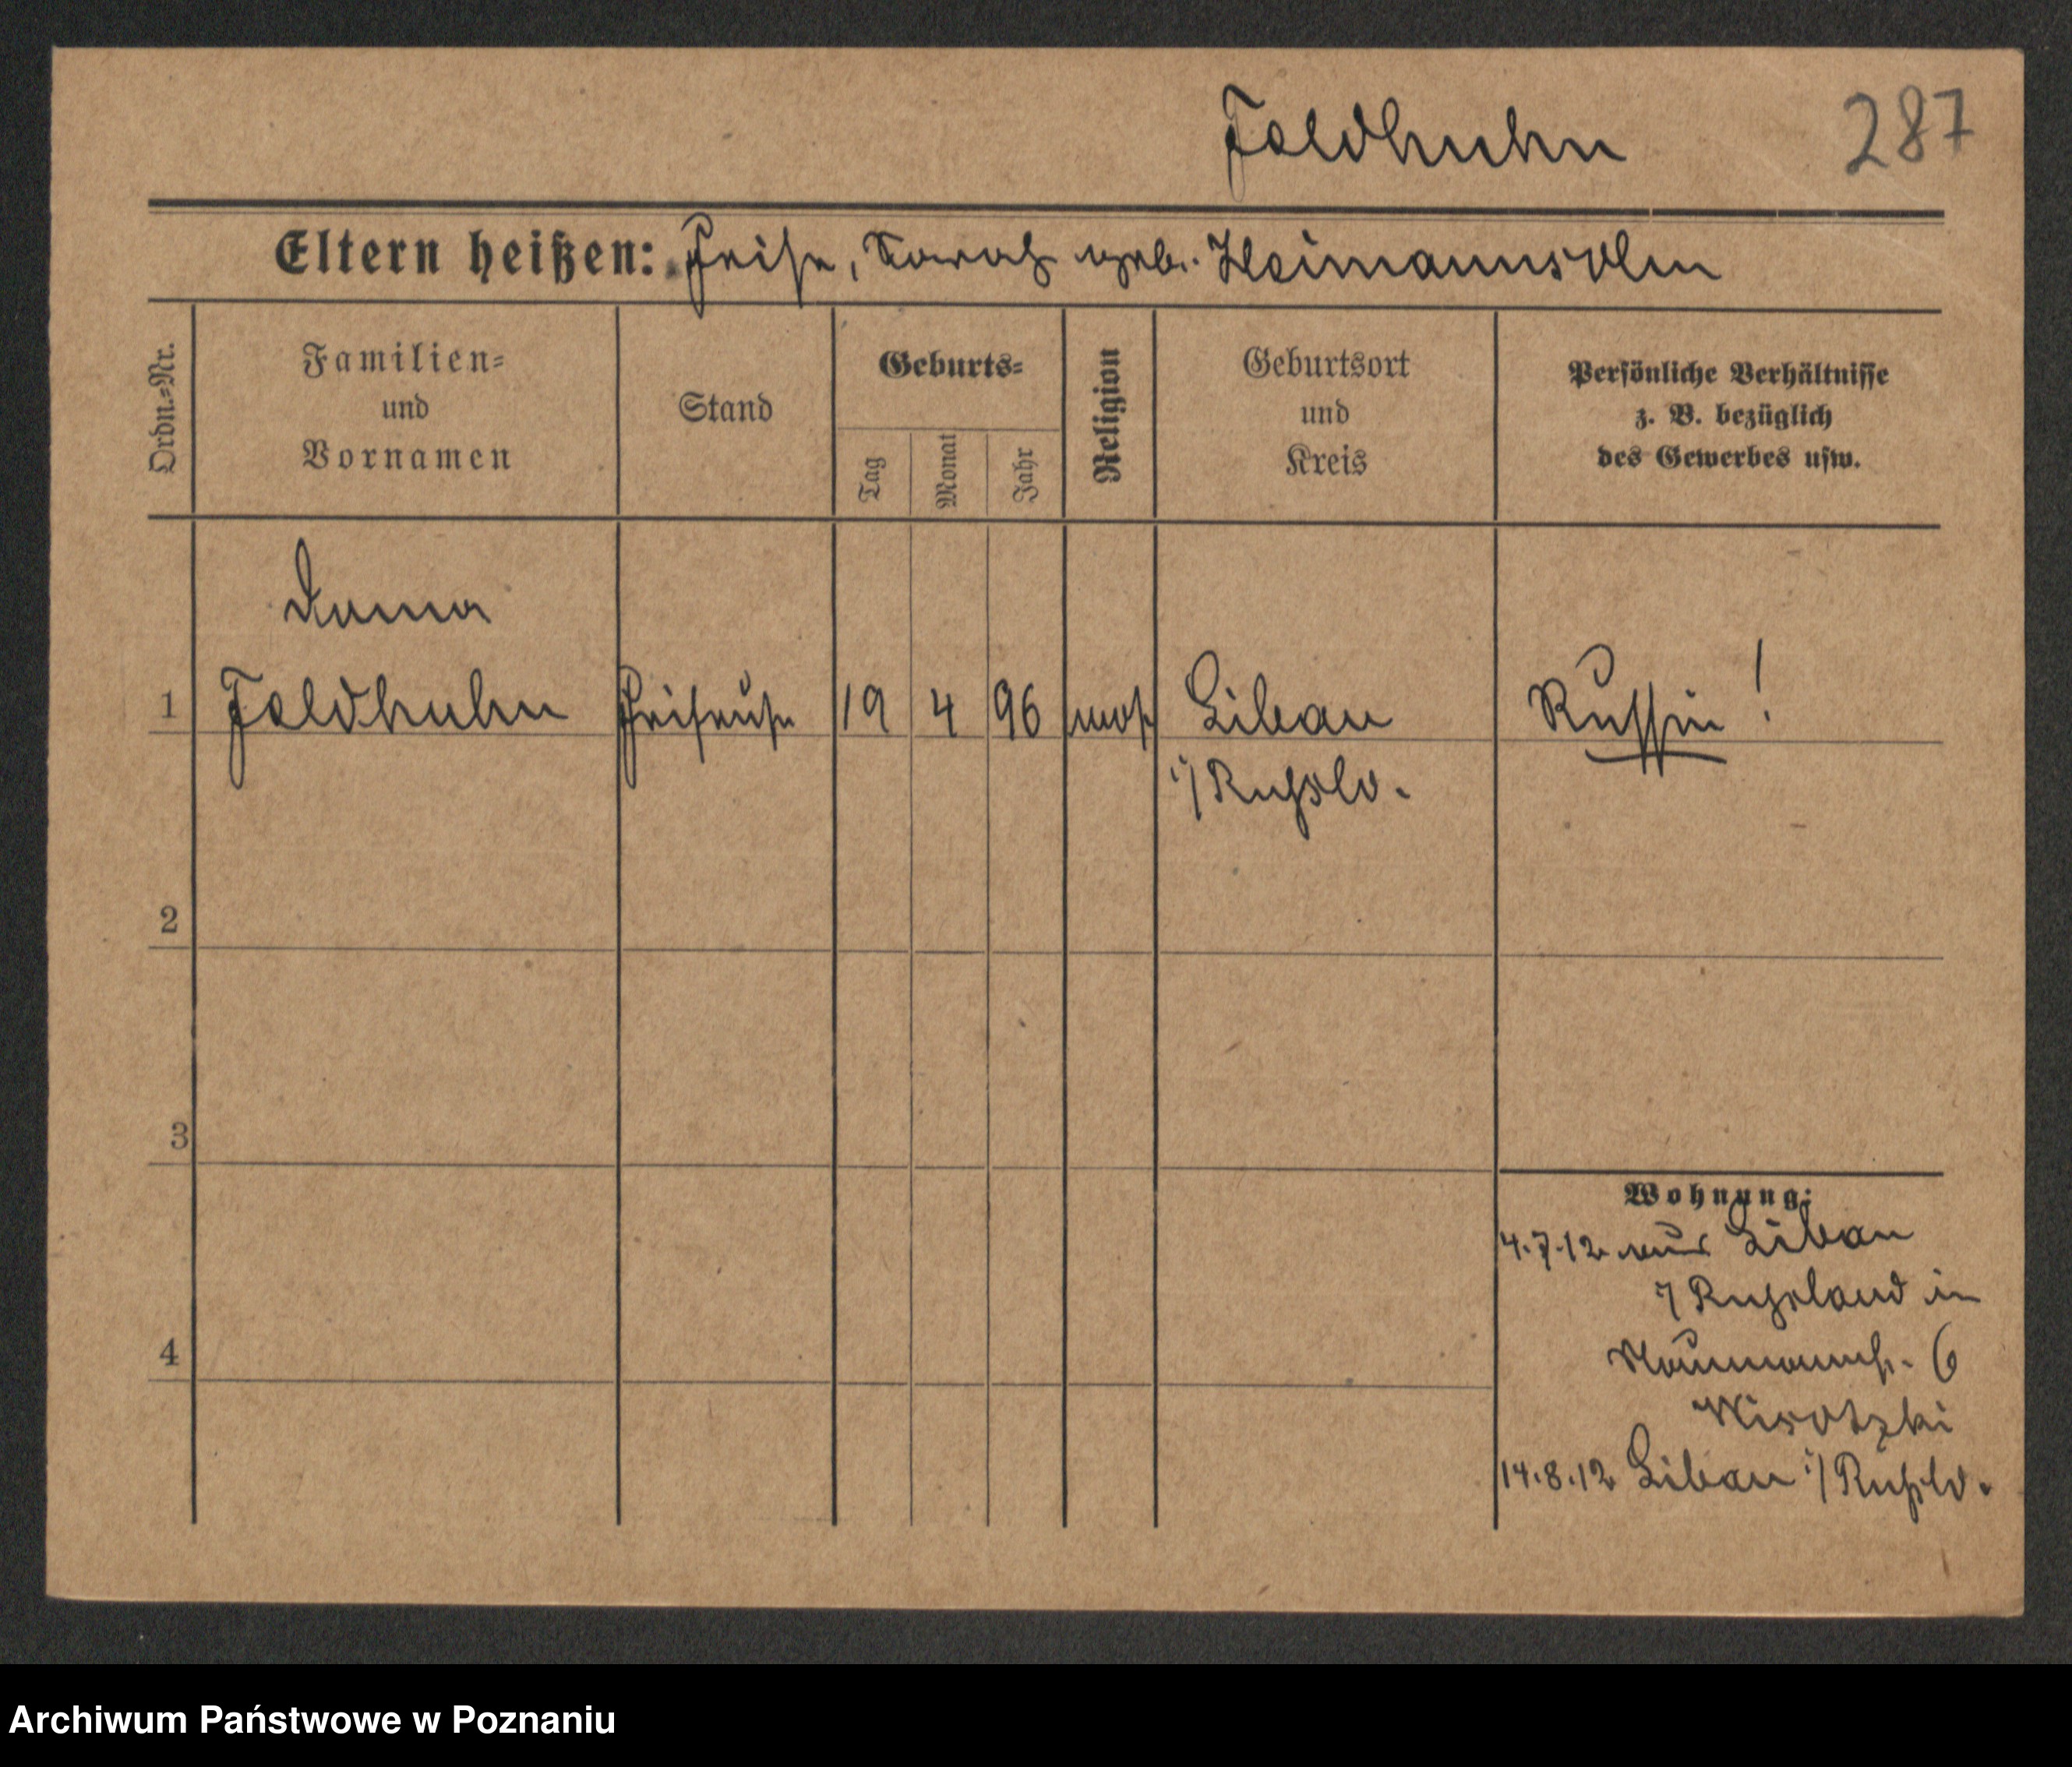 Feldhuhn 287
Eltern heißen: Feise, Sarah geb. Heimannsohn
Ordn.-Nr.
Familien-
und
Vornamen
Stand
Geburts-
Tag
Monat
Jahr
Religion
Geburtsort
und
Kreis
Persönliche Verhältnisse
z. B. bezüglich
des Gewerbes usw.
1 Feldhuhn Friseuse 19 4 96 mos. Libau Russin!
i/Russld.
2
3
Wohnung:
4.7.12 aus Libau
i/ Russland in
4 Naumannstr. 6
Wisotzki
14.8.12 Libau i/Russld.
Archiwum Państwowe w Poznaniu